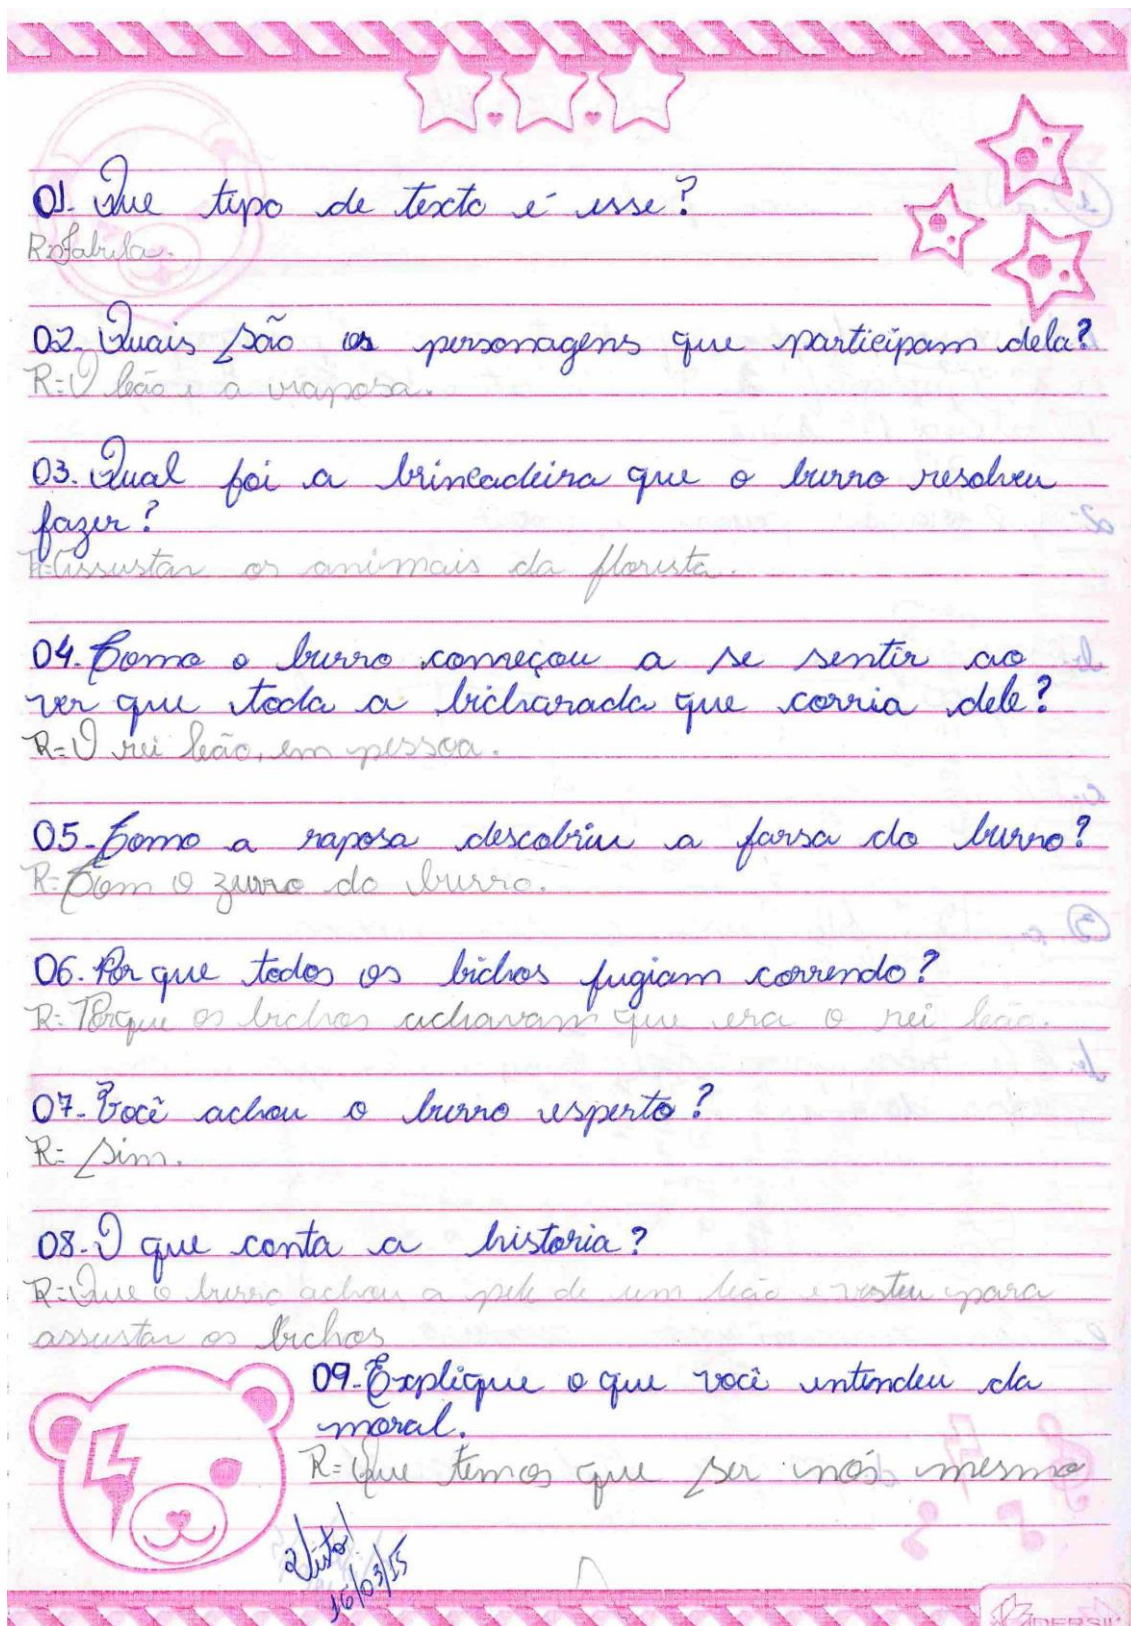 01. Que tipo de texto é esse?
R: Fabula.
02. Quais são os personagens que participam dela?
R= O leão e a raposa.
03. Qual foi a brincadeira que o burro resolveu
fazer?
R= Assustar os animais da floresta.
04. Como o burro começou a se sentir ao
ver que toda a bicharada que corria dele?
R= O rei leão, em pessoa.
05- Como a raposa descobriu a farsa do burro?
R= Com o zurro do burro.
06. Por que todos os bichos fugiam correndo?
R: Porque os bichos achavam que era o rei leão.
07- Você achou o burro esperto?
R= Sim.
08- O que conta a historia?
R= Que o burro achou a pele de um leão e vesteu para
assustar os bichos
09- Explique o que você entendeu da
moral.
R= Que temos que ser nós mesmo
Visto!
16/03/15